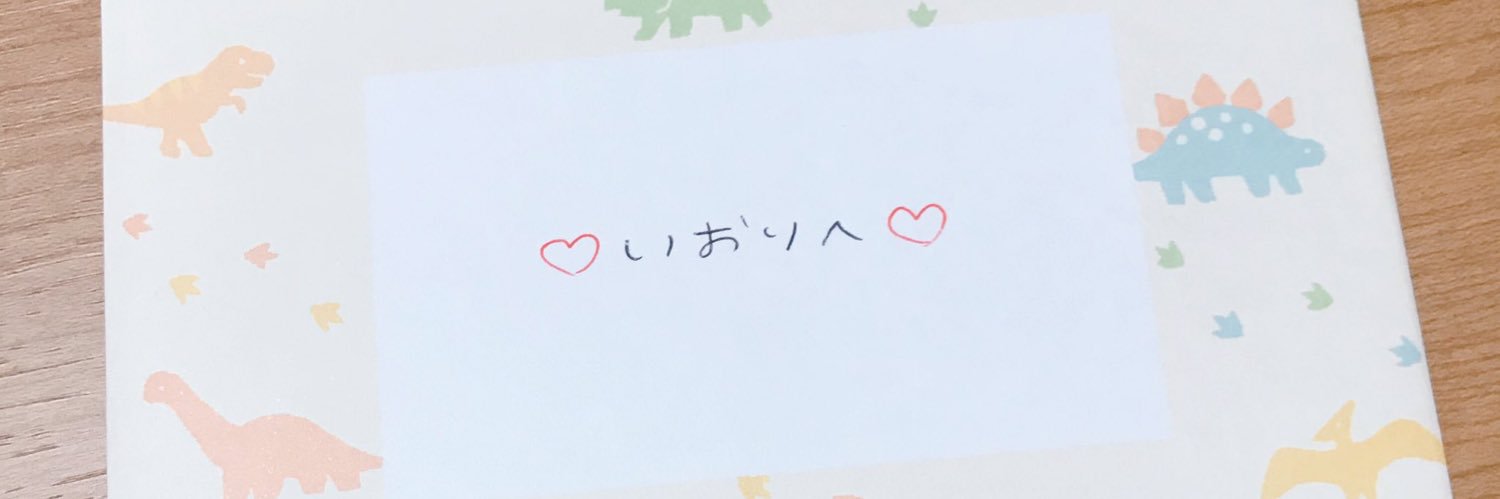 ♡いおりへ♡